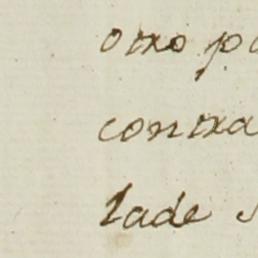 otro p
contra
lade s